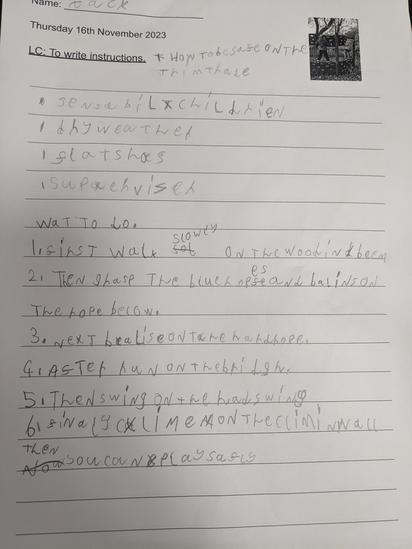 Name: Jack
Thursday 16th November 2023
LC: To write instructions. * How to be safe ON the
trim thale
1 sensabil children
1 dhy weather
1 flat shoes
1 supaehviseh
wat to do.
slowly
1. first walk ON the woodin beem
es
2. Then ghasp the blueh opse and balinson
The hope below.
3. Next bealise on tahe hand hope.
4. After hun on the bridgh.
5. Then swing on the hadswing
6. finaly climem on the climin wall
then
Now you can play safly